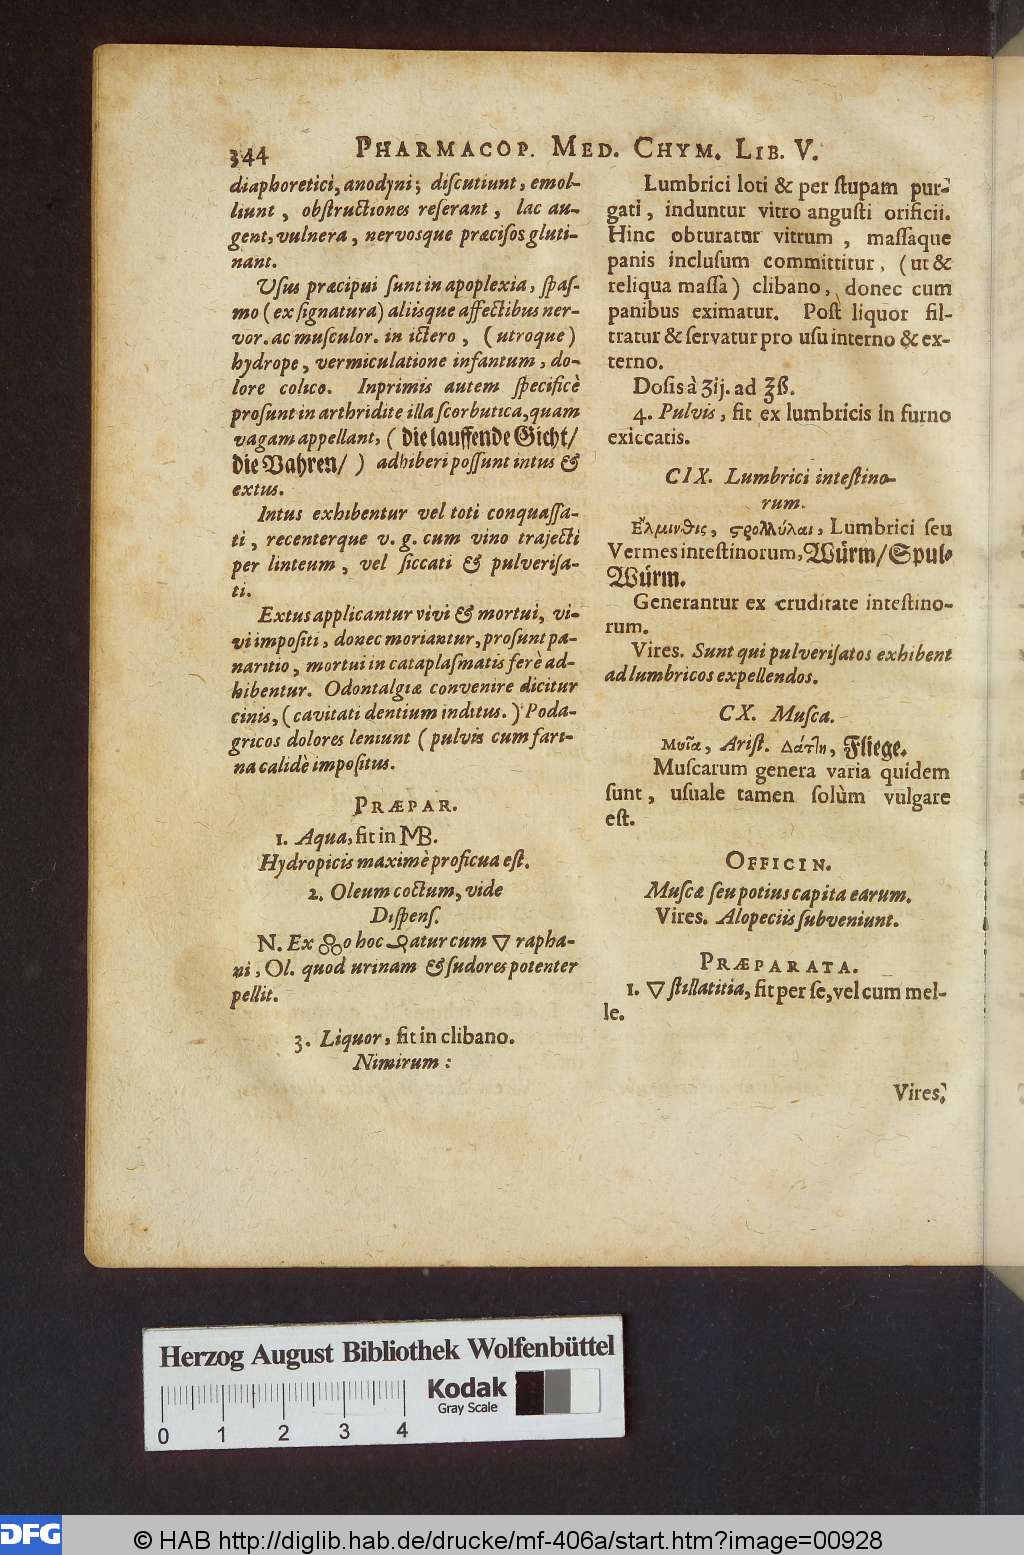 344
PHARMACOP. MED. CHYM. LIB. V.
diaphoretici, anodyni; discutiunt, emol-
liunt, obstructiones reserant, lac au-
gent, vulnera, nervosque præcisos gluti-
nant.
Usus præcipui sunt in apoplexia, spas-
mo (ex signatura) aliisque affectibus ner-
vor. ac musculor. in ictero, (utroque)
hydrope, vermiculatione infantum, do-
lore colico. Inprimis autem specificè
prosunt in arthridite illa scorbutica, quam
vagam appellant, (die lauffende Gicht/
die Vahren/) adhiberi possunt intus &
extus.
Intus exhibentur vel toti conquassa-
ti, recenterque v. g. cum vino trajecti
per linteum, vel siccati & pulverisa-
ti.
Extus applicantur vivi & mortui, vi-
vi impositi, donec moriantur, prosunt pa-
naritio, mortui in cataplasmatis ferè ad-
hibentur. Odontalgiæ convenire dicitur
cinis, (cavitati dentium inditus.) Poda-
gricos dolores leniunt (pulvis cum fari-
na calidè impositus.
PRÆPAR.
1. Aqua, fit in MB.
Hydropicis maximè proficua est.
2. Oleum coctum, vide
Dispens.
N. Ex o hoc atur cum 🜄 rapha-
ni, Ol. quod urinam & sudores potenter
pellit.
3. Liquor, fit in clibano.
Nimirum:
Lumbrici loti & per stupam pur-
gati, induntur vitro angusti orificii.
Hinc obturatur vitrum, massaque
panis inclusum committitur, (ut &
reliqua massa) clibano, donec cum
panibus eximatur. Post liquor fil-
tratur & servatur pro usu interno & ex-
terno.
Dosis à ʒij. ad ℥ß.
4. Pulvis, fit ex lumbricis in furno
exiccatis.
CIX. Lumbrici intestino-
rum.
Ἕλμινθις, στρογγύλαι, Lumbrici seu
Vermes intestinorum, Würm/ Spul-
Würm.
Generantur ex cruditate intestino-
rum.
Vires. Sunt qui pulverisatos exhibent
ad lumbricos expellendos.
CX. Musca.
Μυῖα, Arist. Fliege.
Muscarum genera varia quidem
sunt, usuale tamen solùm vulgare
est.
OFFICIN.
Muscæ seu potius capita earum.
Vires. Alopeciis subveniunt.
PRÆPARATA.
1. 🜄 stillatitia, fit per se, vel cum mel-
le.
Vires,
Herzog August Bibliothek Wolfenbüttel
Kodak
Gray Scale
0 1 2 3 4
DFG
© HAB http://diglib.hab.de/drucke/mf-406a/start.htm?image=00928